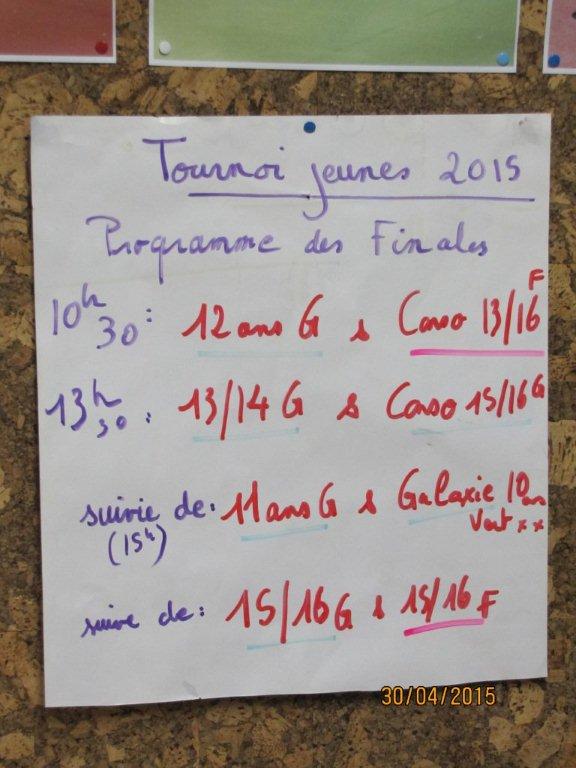 Tournoi jeunes 2015
Programme des Finales
10h30 : 12 ans G & Conso 13/16 F
13h30 : 13/14 G & Conso 15/16 G
suivie de : 11 ans G & Galaxie 10 ans
(15h) Vert xx
suivie de : 15/16 G & 15/16 F
30/04/2015